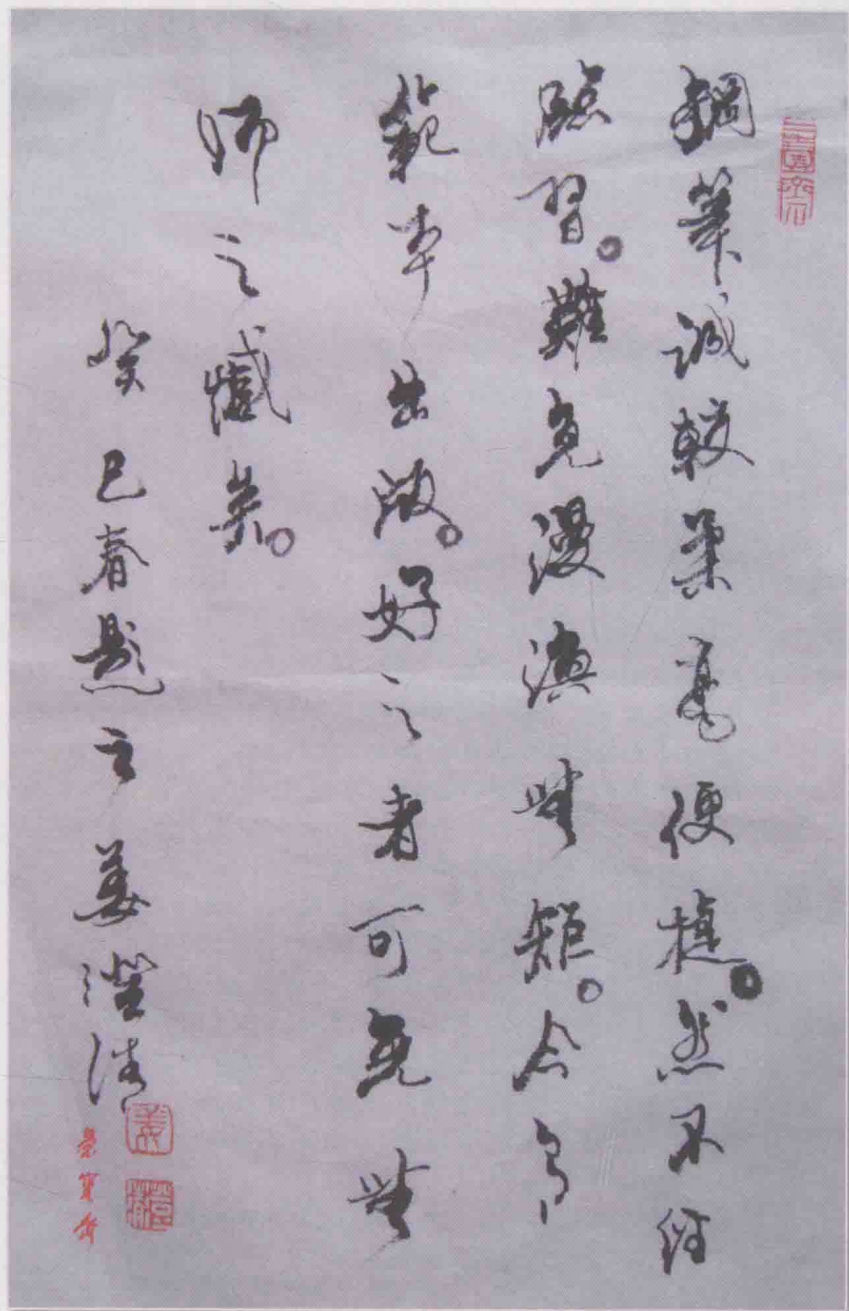 鋼筆誠較柔毫便捷。然不經
臨習。難免漫漶無矩。今有
範本出版。好之者可免無
師之憾矣。
癸巳春題之姜澄清
榮寶齋